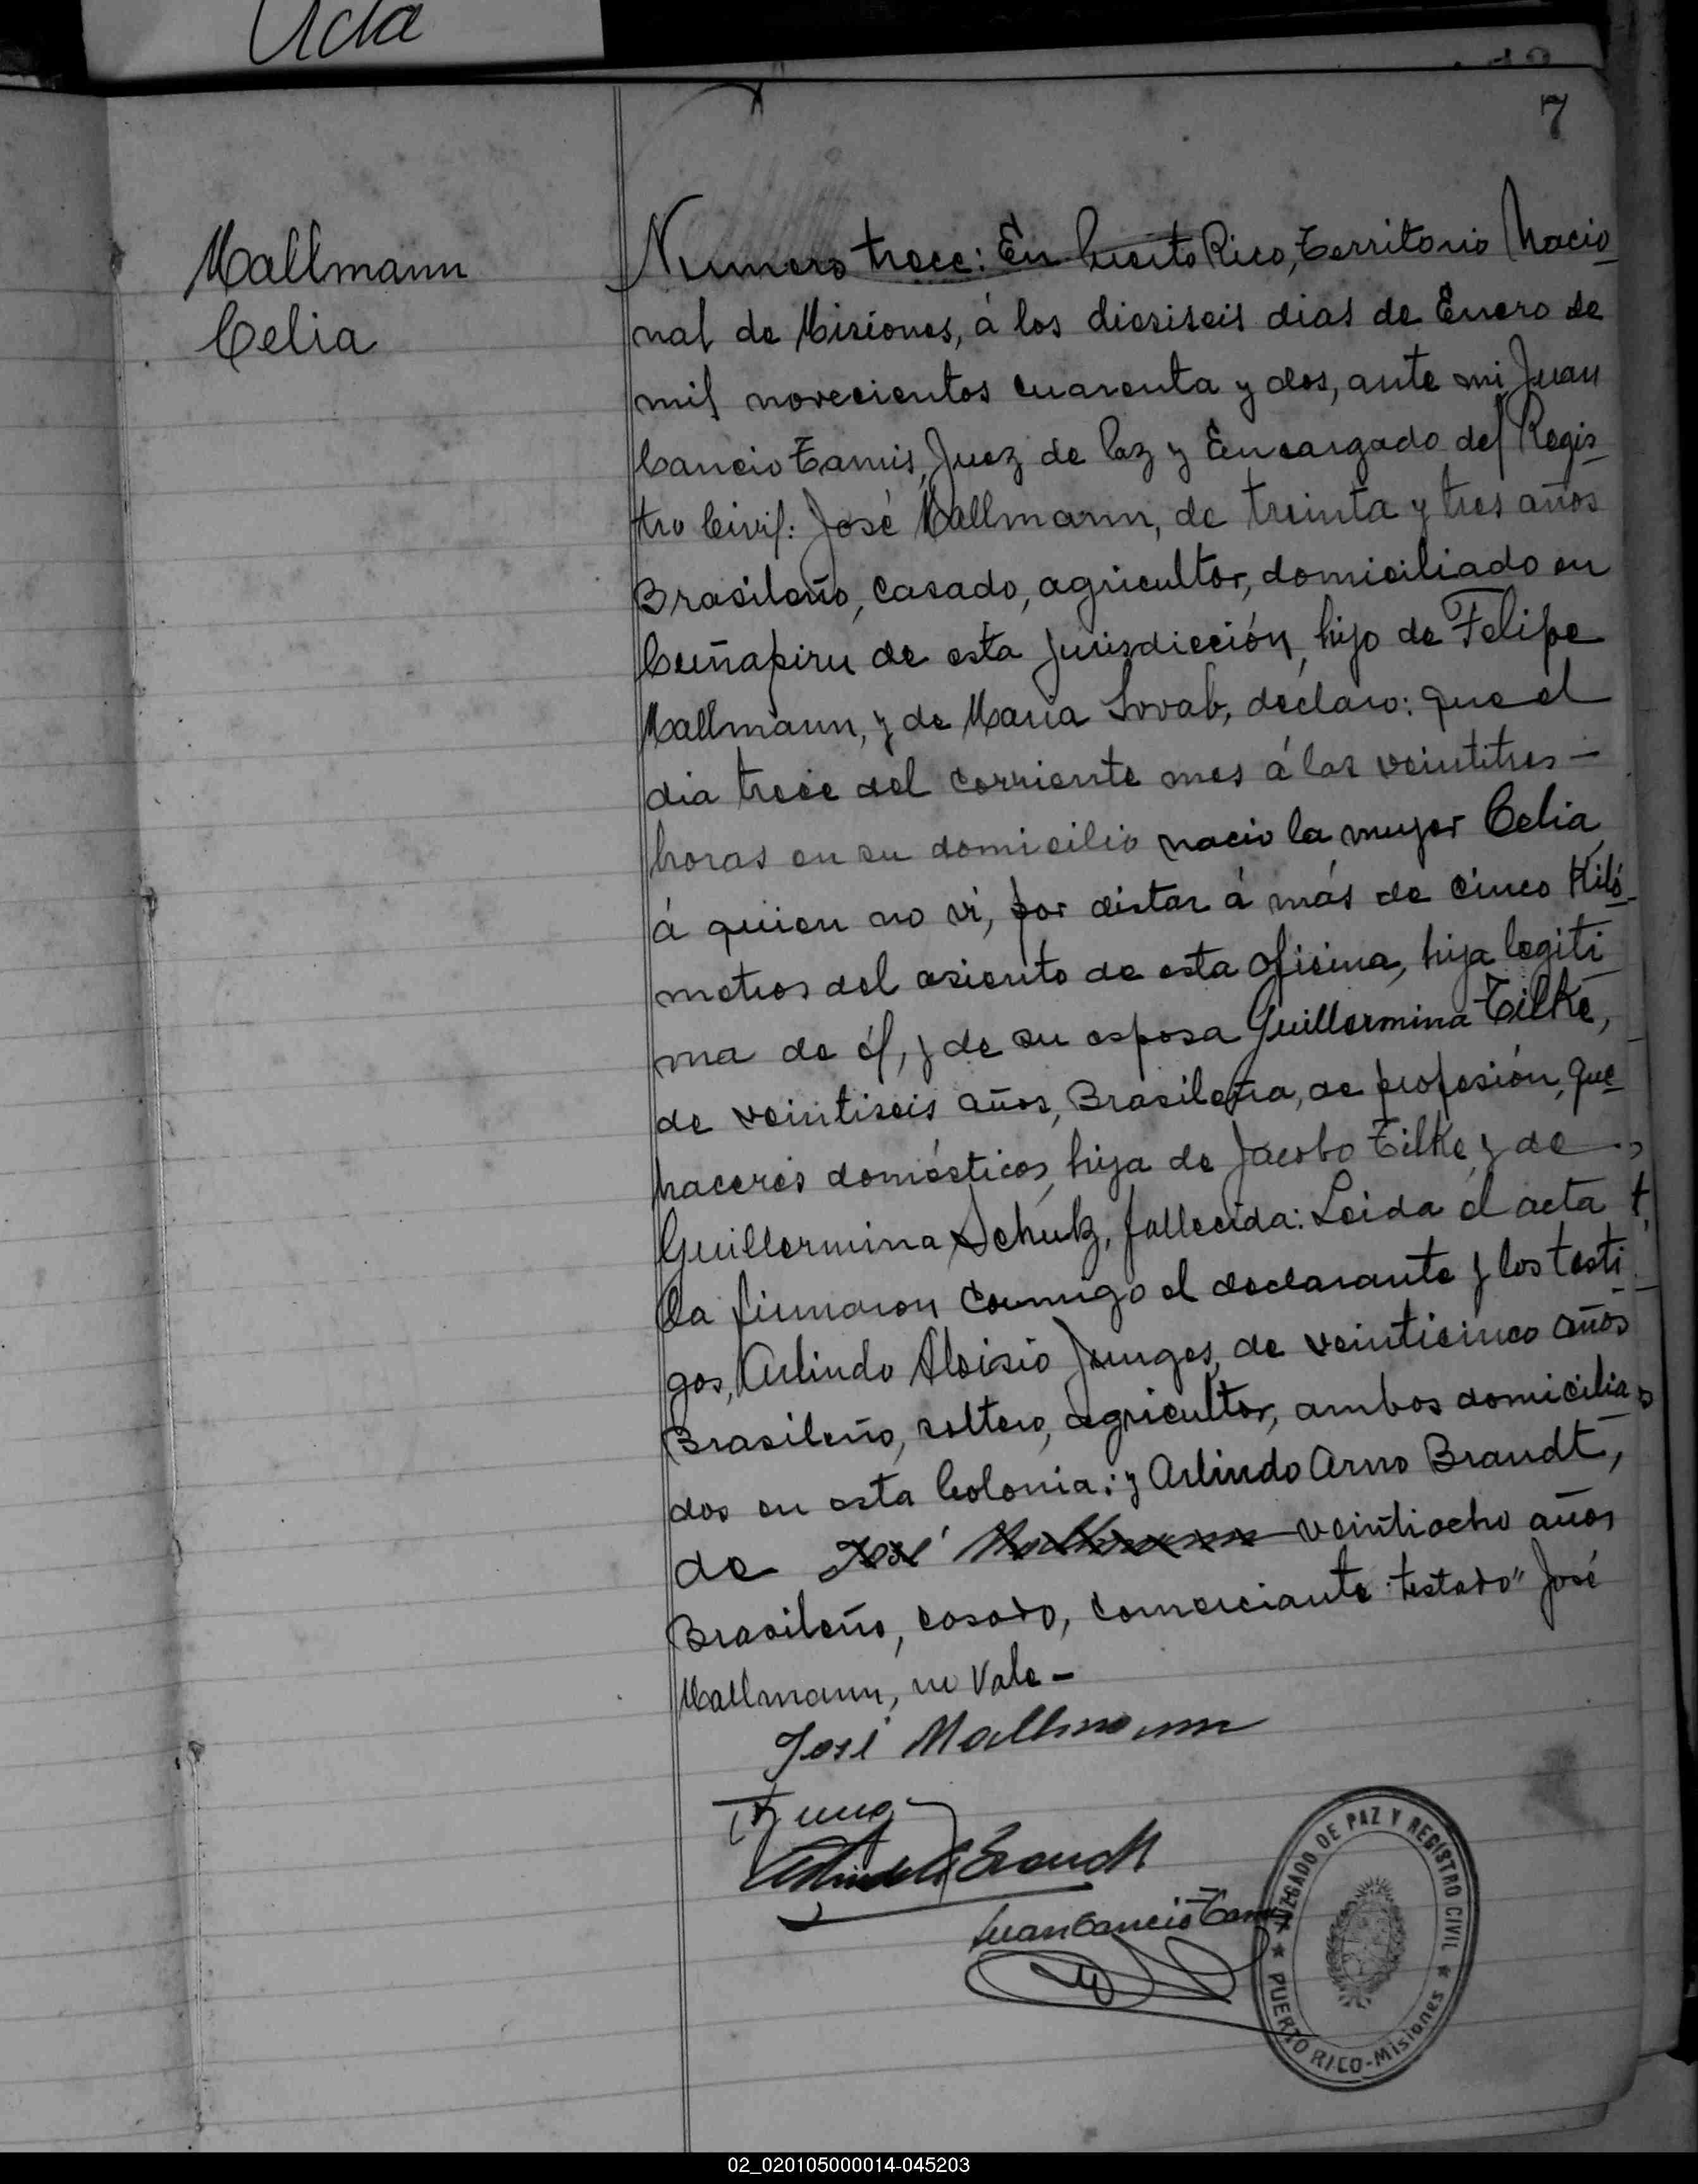 Acta
7
Mallmann
Celia
Numero trece: En Puerto Rico, Territorio Nacio
nal de Misiones, á los dieziseis dias de Enero de
mil novecientos cuarenta y dos, ante mi, Juan
Cancio Tamis, Juez de Paz y Encargado del Regis
tro Civil: José Mallmann, de treinta y tres años
Brasileño, casado, agricultor, domiciliado en
Cuñapiru de esta jurisdicción, hijo de Felipe
Mallmann, y de Maria declaro: que el
dia trece del corriente mes á las veintitres —
horas en su domicilio nacio la mujer Celia,
á quien no vi, por distar á más de cinco Kiló
metros del asiento de esta oficina, hija legiti
ma de él, y de su esposa Guillermina Tilke,
de veintiseis años, Brasileña, de profesión, que
haceres domésticos, hija de Jacobo Tilke y de
Guillermina Schulz, fallecida: Leida el acta
la firmaron conmigo el declarante y los testi
gos, Arlindo Aloisio Junges, de veinticinco años
Brasileño, soltero, agricultor, ambos domicilia
dos en esta Colonia; y Arlindo Arno Brandt,
de José Mallmann veintiocho años
Brasileño, casado, comerciante: testado" José
Mallmann, no Vale —
José Mallmann
Brandt
Juan Cancio Tamis
JUZGADO DE PAZ Y REGISTRO CIVIL
★ PUERTO RICO-Misiones ★
02_020105000014-045203